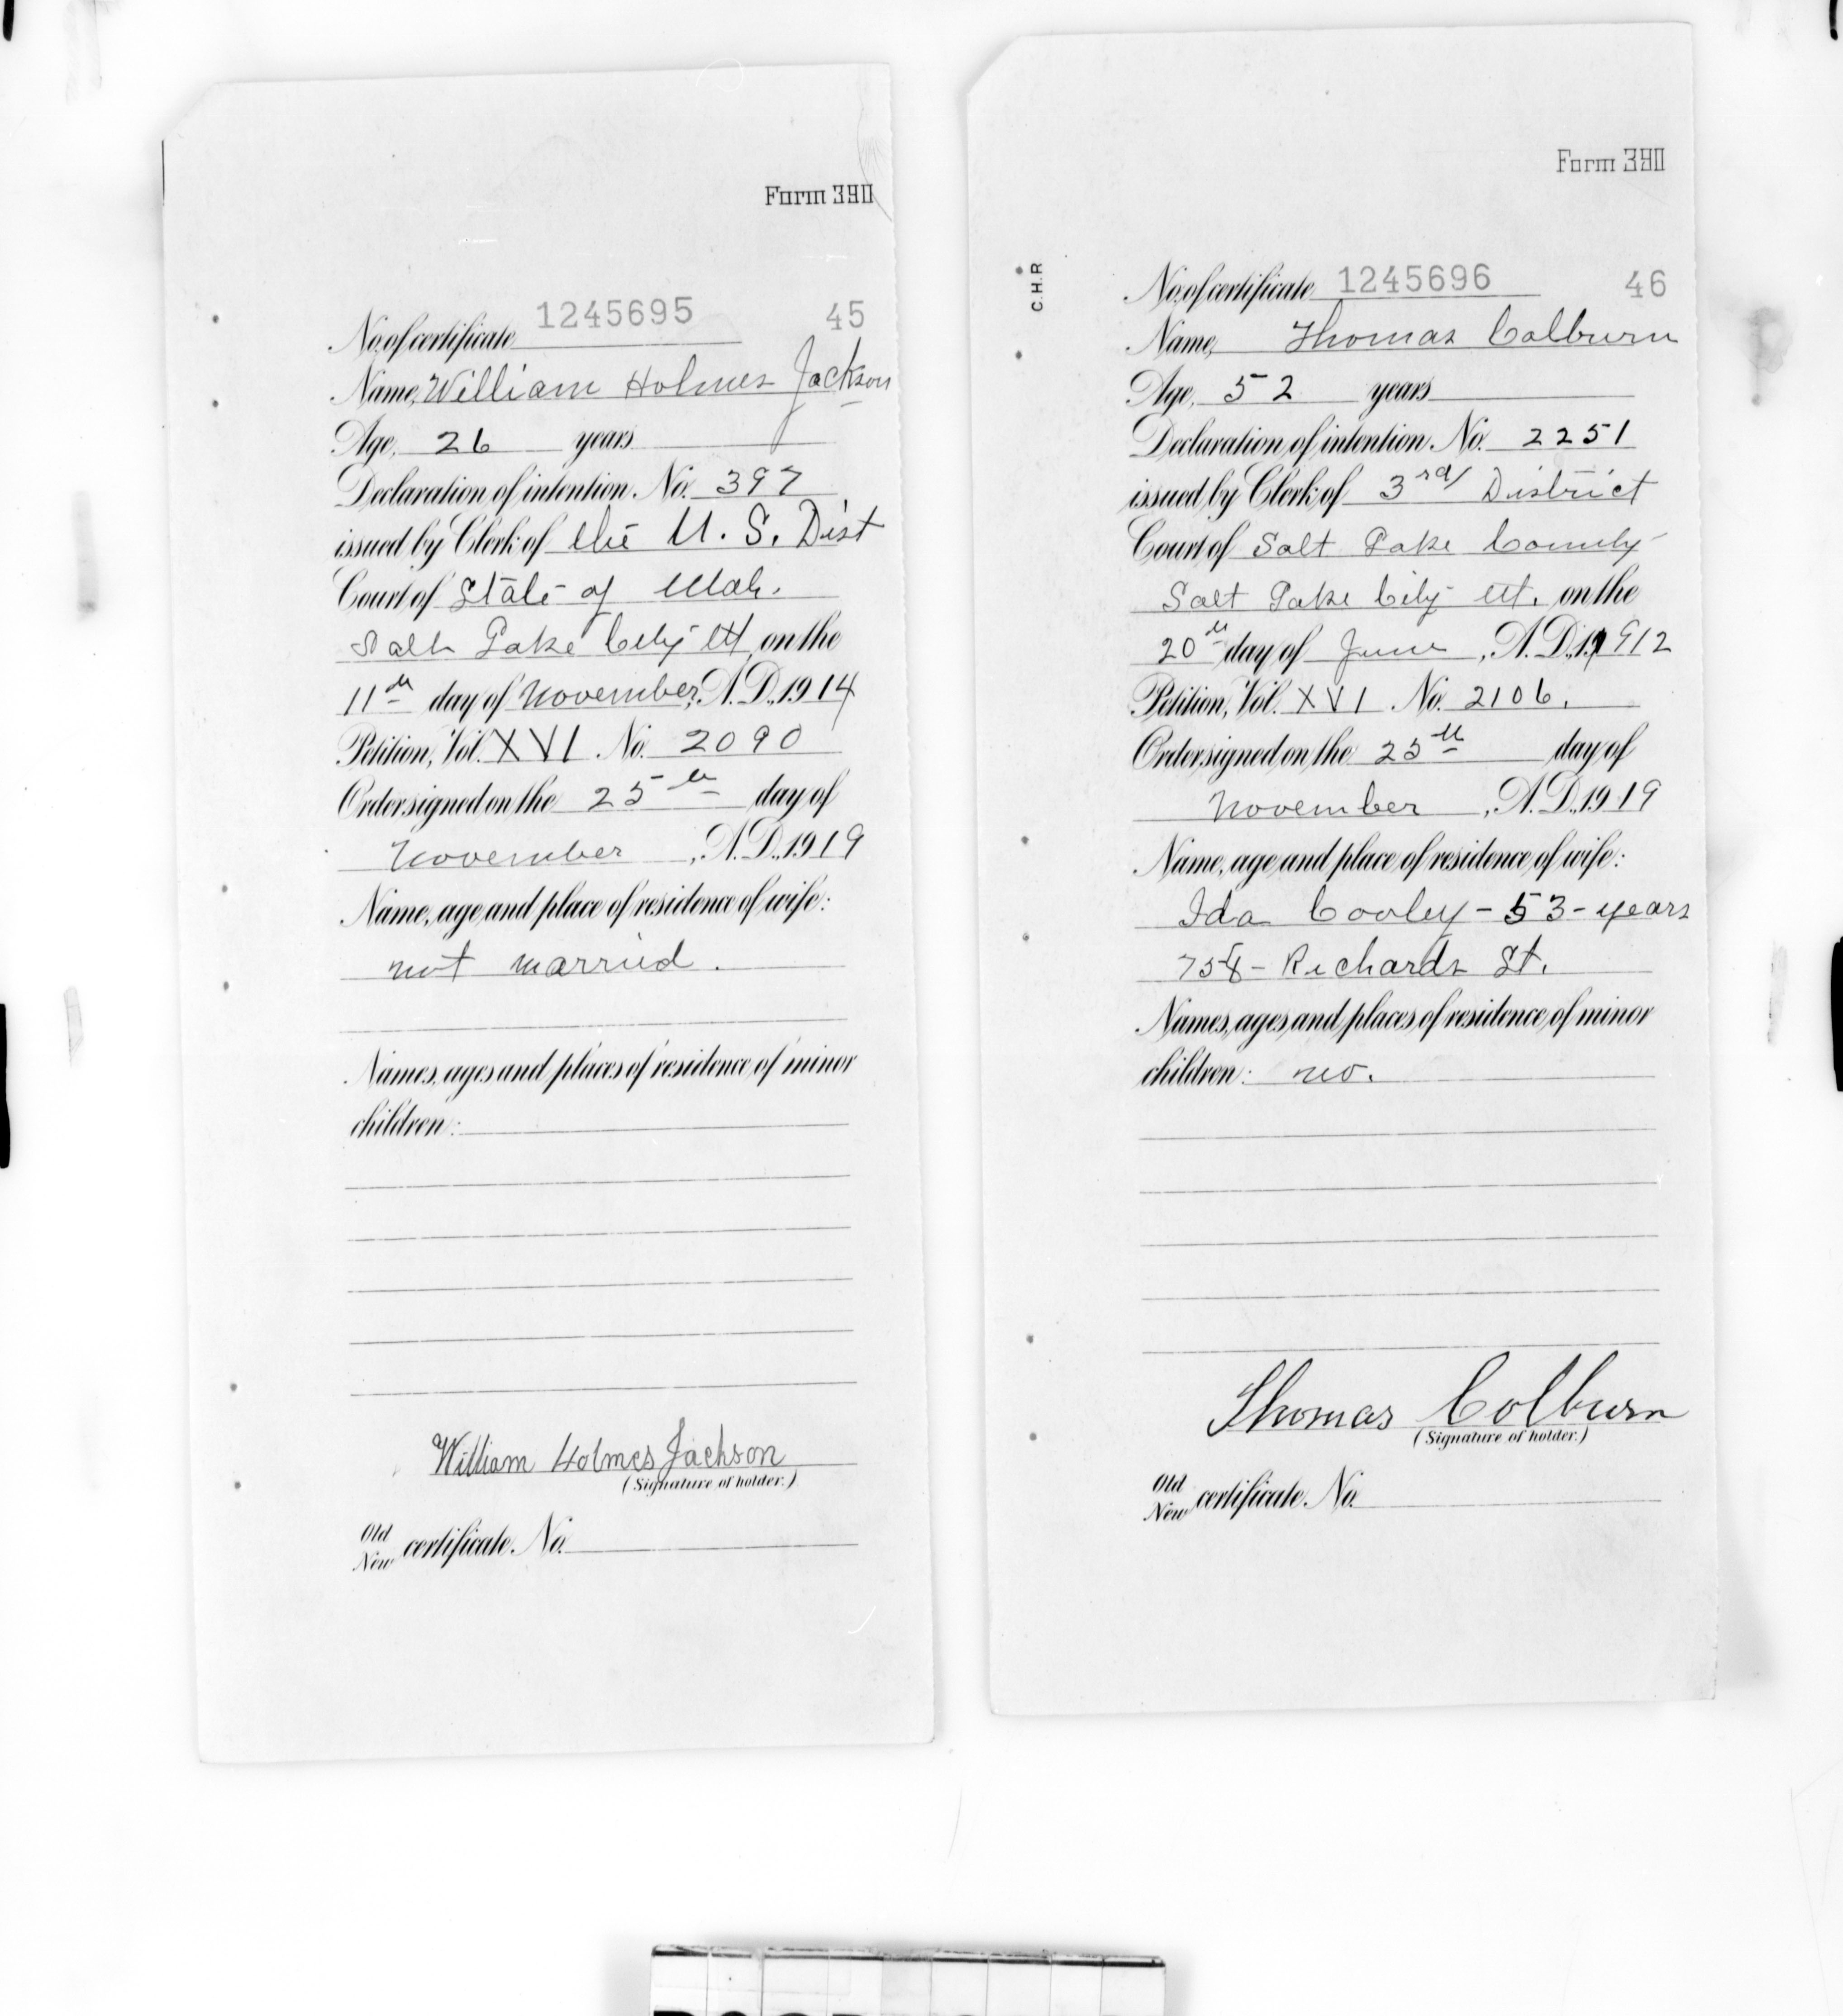 Form 390
1245695 45
No. of certificate
Name, William Holmes Jackson
Age, 26 years
Declaration of intention No. 397
issued by Clerk of the U. S. Dist
Court of State of Utah.
Salt Lake City Ut on the
11th day of November, A.D. 1914
Petition, Vol. XVI No. 2090
Order signed on the 25th day of
November, A.D. 1919
Name, age and place of residence of wife:
not married.
Names, ages and places of residence of minor
children:
William Holmes Jackson
(Signature of holder.)
Old
New certificate No.
Form 390
C.H.R
No. of certificate 1245696 46
Name, Thomas Colburn
Age, 52 years
Declaration of intention No. 2251
issued by Clerk of 3rd District
Court of Salt Lake County
Salt Lake City Ut. on the
20th day of June, A.D. 1912
Petition, Vol. XVI No. 2106.
Order signed on the 25th day of
November, A.D. 1919
Name, age and place of residence of wife:
Ida Cooley - 53 - years
758 - Richards St.
Names, ages and places of residence of minor
children: no.
Thomas Colburn
(Signature of holder.)
Old
New certificate No.